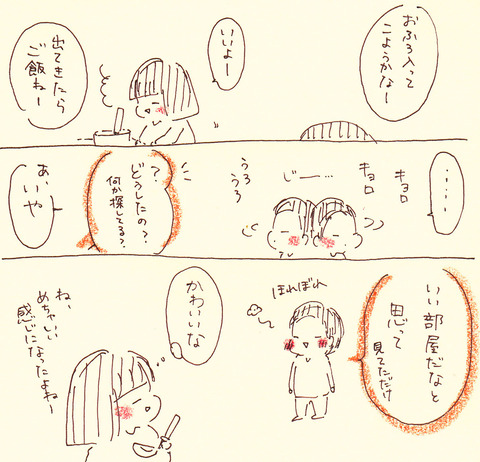 おふろ入って
こようかなー
いいよー
出てきたら
ご飯ねー
……
キョロ
キョロ
じー……
うろ
うろ
？
どうしたの？
何か探してる？
あ、いや
いい部屋だなと
思って
見てただけ
ほれぼれ
かわいいな
ね、
めちゃいい
感じになったよねー